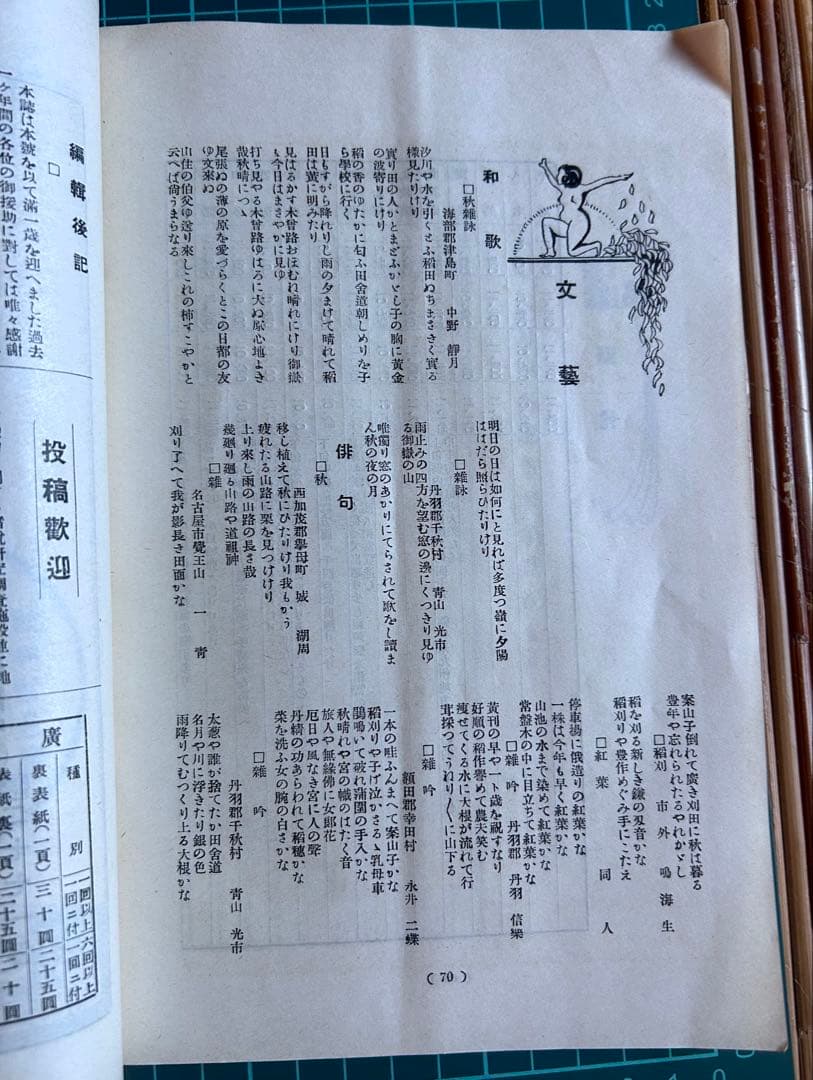 文藝
和歌
□秋雜詠
海部郡津島町　中野　靜月
汐川や水を引くとふ稻田ぬちまさきく實る
樣見たりけり
實り田の人かとまどふかゞし子の胸に黃金
の波寄りにけり
稻の香のゆたかに匂ふ田舍道朝しめりを子
ら學校に行く
日もすがら降れりし雨の夕まけて晴れて稻
田は黃に明みたり
見はるかす木曾路おほむね晴れにけり御嶽
も今日はまさやかに見ゆ
打ち見やる木曾路ゆはろに大ぬ原心地よき
哉秋晴につゝ
尾張ぬの薄の原を愛づらくとこの日都の友
ゆ文來ぬ
山住の伯父ゆ送り來しこれの柿すこやかと
云へば尙うまらなる
明日の日は如何にと見れば多度つ嶺に夕陽
はだら照らひたりけり
□雜詠
丹羽郡千秋村　靑山　光市
雨止みの四方を望む窓の邊にくつきり見ゆ
る御嶽の山
唯獨り窓のあかりにてらされて歌をし讀ま
ん秋の夜の月
俳句
□秋
西加茂郡擧母町　城　湖周
移し植えて秋にひたりけり我もかう
疲れたる山路に栗を見つけけり
上り來し雨の山路の長さ哉
幾廻り廻る山路や道祖神
□雜
名古屋市覺王山　一　靑
刈り了へて我が影長き田面かな
案山子倒れて廣き刈田に秋は暮る
豐年や忘れられたるやれかゞし
□稻刈　市外　鳴海生
稻を刈る新しき鎌の刄音かな
稻刈りや豐作めぐみ手にこたえ
□紅葉　同人
停車場に俄造りの紅葉かな
一株は今年も早く紅葉かな
山池の水まで染めて紅葉かな
常盤木の中に目立ちて紅葉かな
□雜吟　丹羽郡　丹羽　信樂
黃刊の早や一ト歲を祝すなり
好順の稻作譽めて農夫笑む
瘦せてくる水に大根が流れて行
茸採つてうねり〳〵に山下る
□雜吟
額田郡幸田村　永井　二蝶
一本の畦ふんまへて案山子かな
稻刈りや子げ泣かさるゝ乳母車
鵙鳴いて破れ蒲團の手入かな
秋晴れや宮の幟のはたく音
旅人や無緣佛に女郎花
厄日や風なき宮に人の聲
丹精の功あらわれて稻穗かな
菜を洗ふ女の腕の白さかな
□雜吟
丹羽郡千秋村　靑山　光市
太葱や誰が捨てたか田舍道
名月や川に浮きたり銀の色
雨降りてむつくり上る大根かな
(70)
編輯後記
□
本誌は本號を以て滿一歲を迎へました過去
一ケ年間の各位の御援助に對しては唯々感謝
投稿歡迎
廣
種別
一回以上一回ニ付
六回以上一回ニ付
裏表紙(一頁)
三十圓
二十五圓
表紙裏(一頁)
二十五圓
二十圓